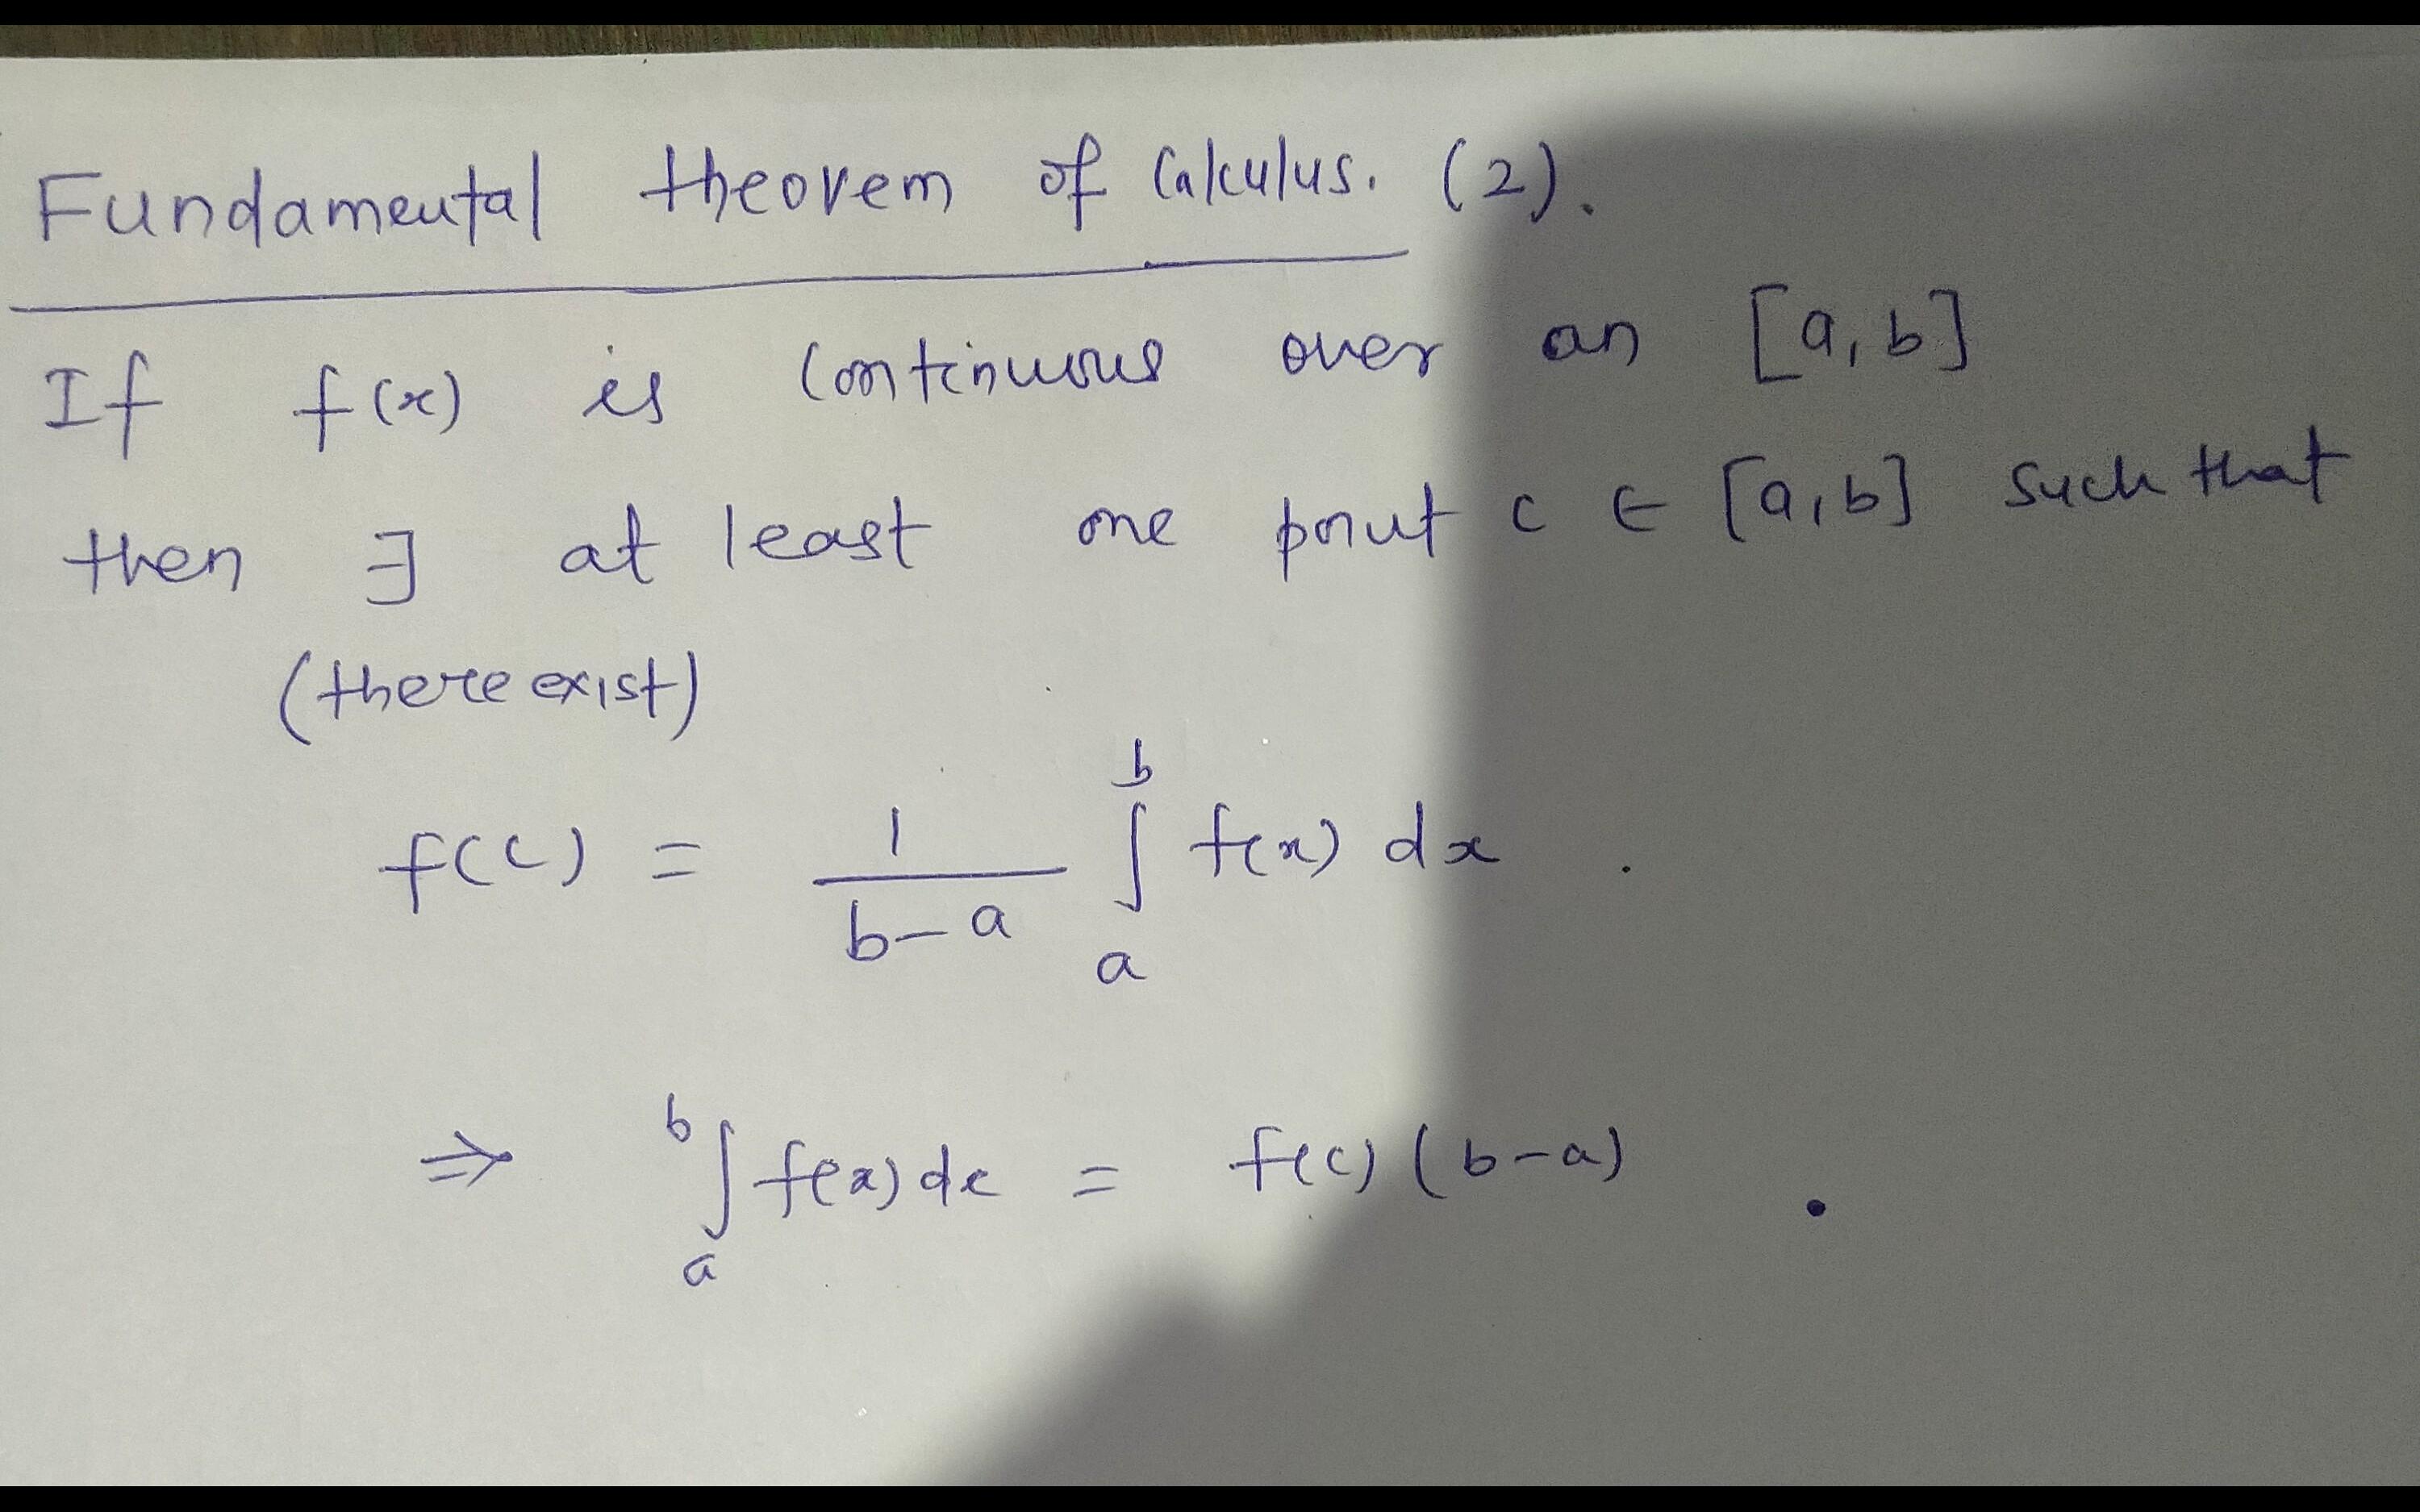 Fundamental theorem of Calculus. (2).
If f(x) is continuous over an [a,b]
then ∃ at least one point c ∈ [a,b] such that
(there exist)
f(c) = \frac{1}{b-a} \int_a^b f(x) dx .
⇒ \int_a^b f(x) dx = f(c) (b-a) .